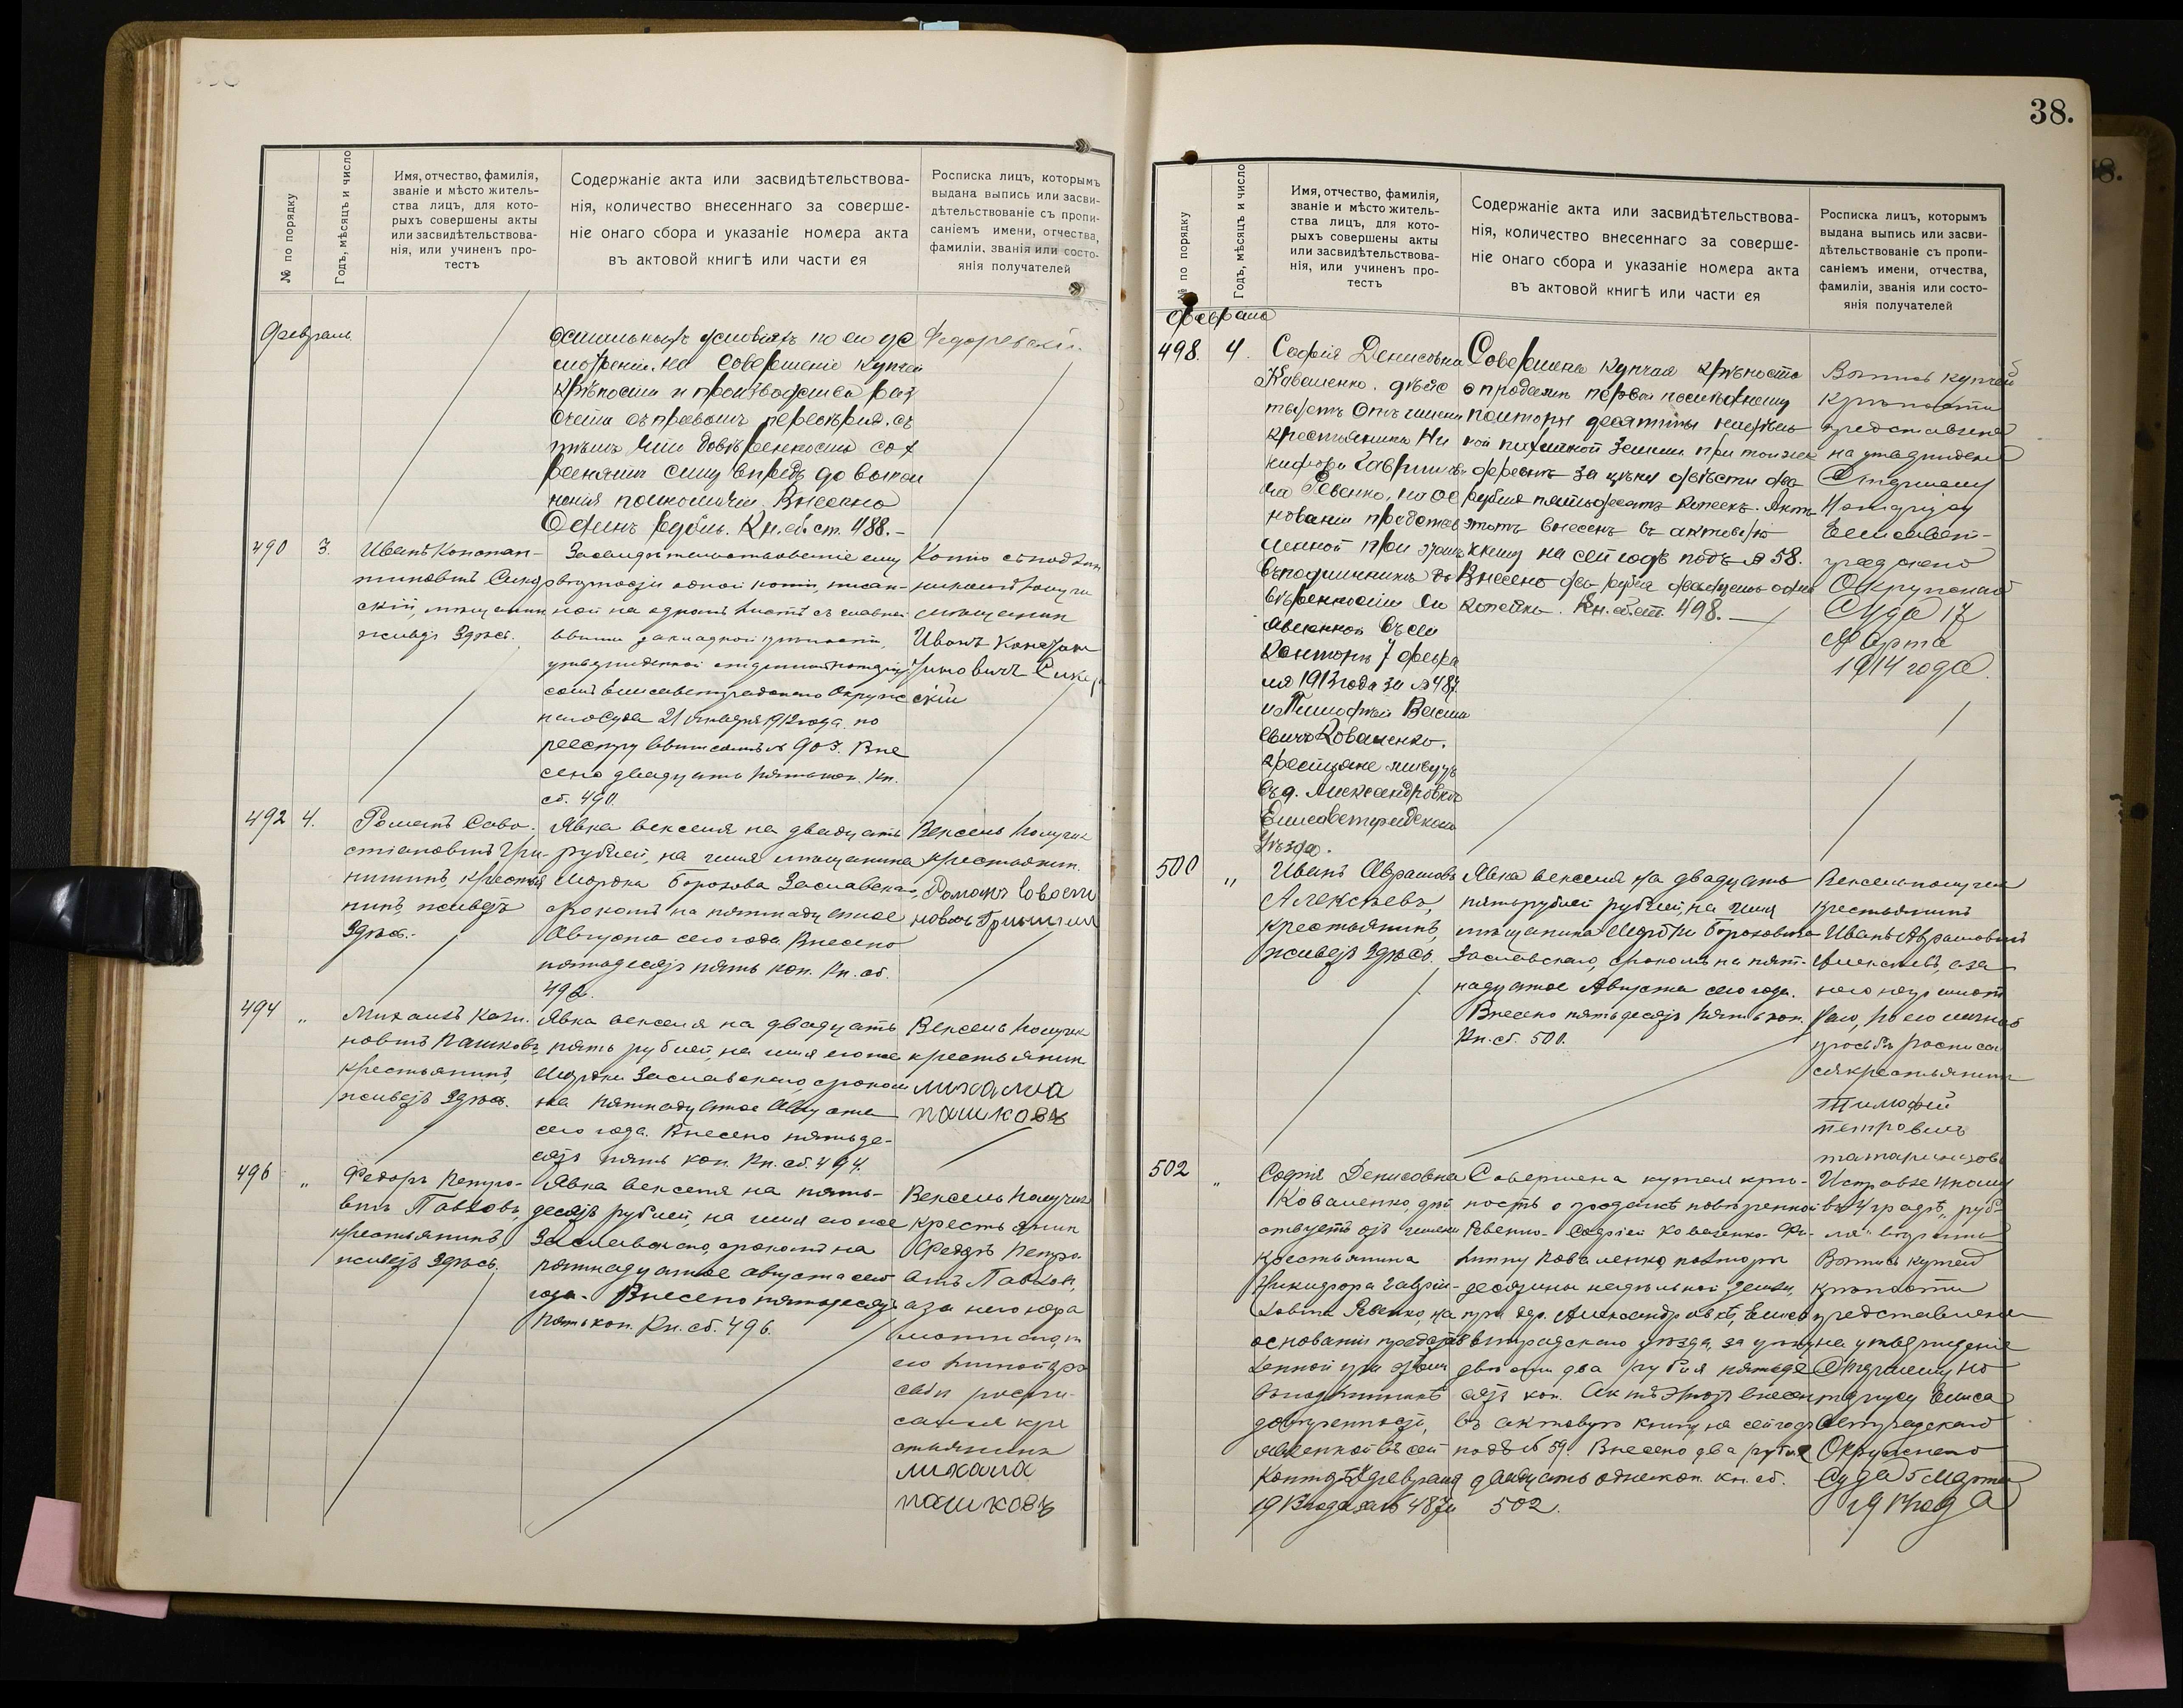 38.
№ по порядку
Годъ, мѣсяцъ и число
Имя, отчество, фамилія,
званіе и мѣсто житель-
ства лицъ, для кото-
рыхъ совершены акты
или засвидѣтельствова-
нія, или учиненъ про-
тестъ
Содержаніе акта или засвидѣтельствова-
нія, количество внесеннаго за соверше-
ніе онаго сбора и указаніе номера акта
въ актовой книгѣ или части ея
Росписка лицъ, которымъ
выдана выпись или засви-
дѣтельствованіе съ пропи-
саніемъ имени, отчества,
фамиліи, званія или состо-
янія получателей
Февраль
условіяхъ по его ус
мотрѣнію, на совершеніе купчей
крѣпости и производства раз
счета съ правомъ передовѣрія. съ
Внесено
Одинъ рубль. Кн. сб. ст. 488.-
490
3.
Иванъ Констан-
тиновичъ
скій, мѣщанинъ
живетъ здѣсь.
Засвидѣтельствованіе ему
вѣрности одной копіи, писан-
ной на одномъ листѣ съ главной
выписи закладной крѣпости,
утвержденной старшимъ нотаріу
сомъ Елисаветградскаго Окруж
наго Суда 21 1912 года по
реестру № 903. Вне
сено двадцать пять коп. Кн.
сб. 490.
мѣщанин
Иванъ Констан
тиновичъ
скій
492
4.
Романъ Сава
стіановичъ Гри-
нинъ, крестья
нинъ, живетъ
здѣсь.-
Явка векселя на двадцать
рублей, на имя мѣщанина
Мордка Борохова Заславскаго,
срокомъ на пятнадцатое
Августа сего года. Внесено
пятьдесятъ пять коп. Кн. сб.
492.
Вексель получил
крестьянин
Романъ Савасти
новичъ
494
"
Михаилъ
новичъ Пашковъ,
крестьянинъ,
живетъ здѣсь.
Явка векселя на двадцать
пять рублей, на имя его же
Мордки Заславскаго, срокомъ
на пятнадцатое Августа
сего года. Внесено пятьде-
сятъ пять коп. Кн. сб. 494.
Вексель получил
крестьянин
михаила
пашковъ
496
"
Федоръ Петро-
вичъ Павловъ,
крестьянинъ,
живетъ здѣсь.
Явка векселя на пять-
десятъ рублей, на имя его же
Заславскаго, срокомъ на
пятнадцатое августа сего
года. Внесено пятьдесятъ
пять коп. Кн. сб. 496.
Вексель получил
крестьянин
Федоръ Петро
вичъ Павловъ,
а за него негра
мотнаго, по
его личной про
сьбѣ распи-
сался кре
стьянинъ
михаила
пашковъ
№ по порядку
Годъ, мѣсяцъ и число
Имя, отчество, фамилія,
званіе и мѣсто житель-
ства лицъ, для кото-
рыхъ совершены акты
или засвидѣтельствова-
нія, или учиненъ про-
тестъ
Содержаніе акта или засвидѣтельствова-
нія, количество внесеннаго за соверше-
ніе онаго сбора и указаніе номера акта
въ актовой книгѣ или части ея
Росписка лицъ, которымъ
выдана выпись или засви-
дѣтельствованіе съ пропи-
саніемъ имени, отчества,
фамиліи, званія или состо-
янія получателей
Февраля
498.
4.
Софія Денисовна
Коваленко, дѣйс
твуетъ отъ имени
крестьянина Ни
кифора Гаврило
ча Ревенко, на ос
нованіи представ
ленной при этомъ
въ подлинникѣ до
вѣренности
явленной въ сей
Конторѣ 7 февра
ля 1913 года за № 487
и Тимофей Васи
евичъ Коваленко,
крестьяне живутъ
въ д. Александровкѣ
Елисаветградскаго
Уѣзда.
Совершена купчая крѣпость
о продажѣ первой послѣднему
полторы десятины
земли при той же
деревнѣ за цѣну двѣсти два
рубля пятьдесятъ копѣекъ. Актъ
этотъ внесенъ въ актовую
книгу на сей годъ подъ № 58.
Внесено два рубля двадцать одна
копейка. Кн. сб. ст. 498.
Выпись купчей
крѣпости
представлена
на утвержденіе
Старшему
Нотаріусу
Елисавет-
градскаго
Окружнаго
Суда 17
Марта
1914 года.
500
"
Иванъ Аврамовъ
Алексѣевъ,
крестьянинъ,
живетъ здѣсь.
Явка векселя на двадцать
пять рублей рублей, на имя
мѣщанина Мордки Бороховича
Заславскаго, срокомъ на пят-
надцатое Августа сего года.
Внесено пятьдесятъ пять коп.
Кн. сб. 500.
Вексель получил
крестьянинъ
Иванъ Аврамовичъ
Алексѣевъ, а за
него неграмотн
аго, по его личной
просьбѣ расписал
ся крестьянинъ
Тимофей
петровичъ
502
"
Софія Денисовна
Коваленко, дѣй
ствуетъ отъ имени
крестьянина
Никифора Гаври-
ловича Ревенко, на
основаніи представ
ленной при этомъ
въ подлинникѣ
довѣренности,
явленной въ сей
Конторѣ 7 февраля
1913 года за № 487
Совершена купчая крѣ-
пость о продажѣ повѣренной
Ревенко- Софіей Коваленко- Фи-
липпу Коваленко полторы
десятины надѣльной земли,
при дер. Александровкѣ, Елиса
ветградскаго уѣзда, за цѣну
двѣсти два рубля пятьде
сятъ коп. Актъ этотъ внесен
въ актовую книгу на сей годъ
подъ № 59. Внесено два рубля
двадцать одна коп. кн. сб.
502.
Выпись купчей
крѣпости
представлена
на утвержденіе
Старшему Но
таріусу Елиса
ветградскаго
Окружнаго
Суда 5 Марта